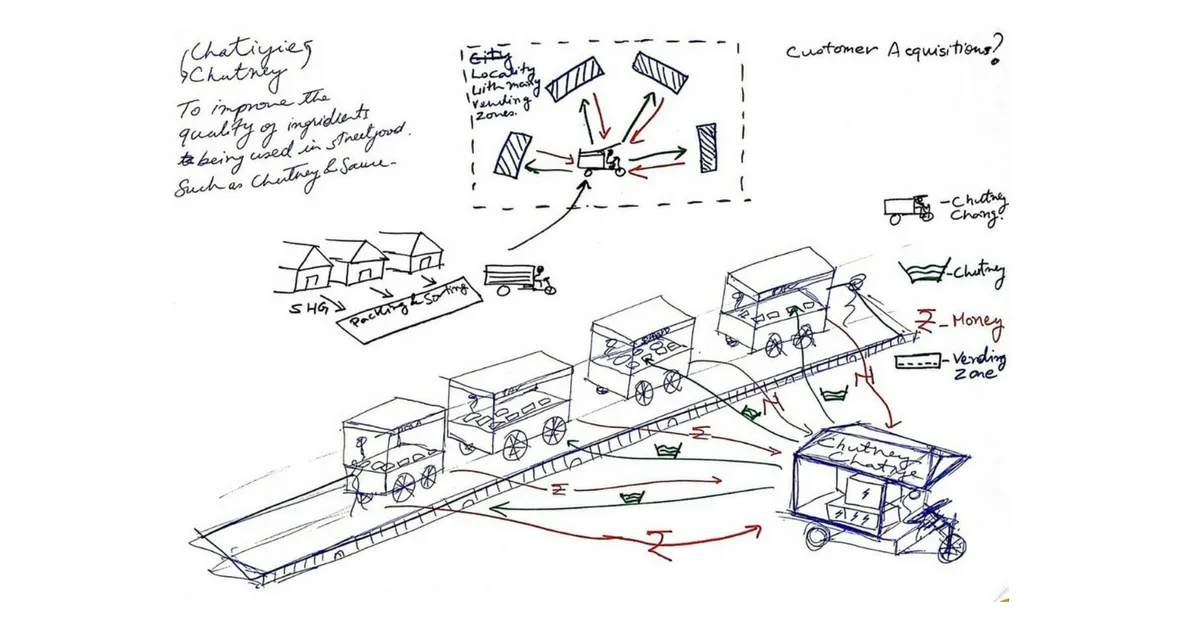 Chutney
To improve the
quality of ingridients
being used in streetfood.
Such as Chutney & Sauce-
City
Locality
with many
vending
zones.
Customer Acquisitions?
-Chutney
₹ - Money
-Vending
Zone
SHG
Packing & Sorting
PAV
₹
₹
₹
₹
₹
Chutney